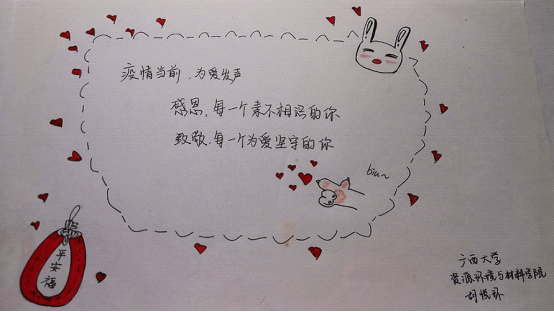 疫情当前,为爱发声
感恩,每一个素不相识的你
致敬,每一个为爱坚守的你
biu~
平安福
广西大学
资源环境与材料学院